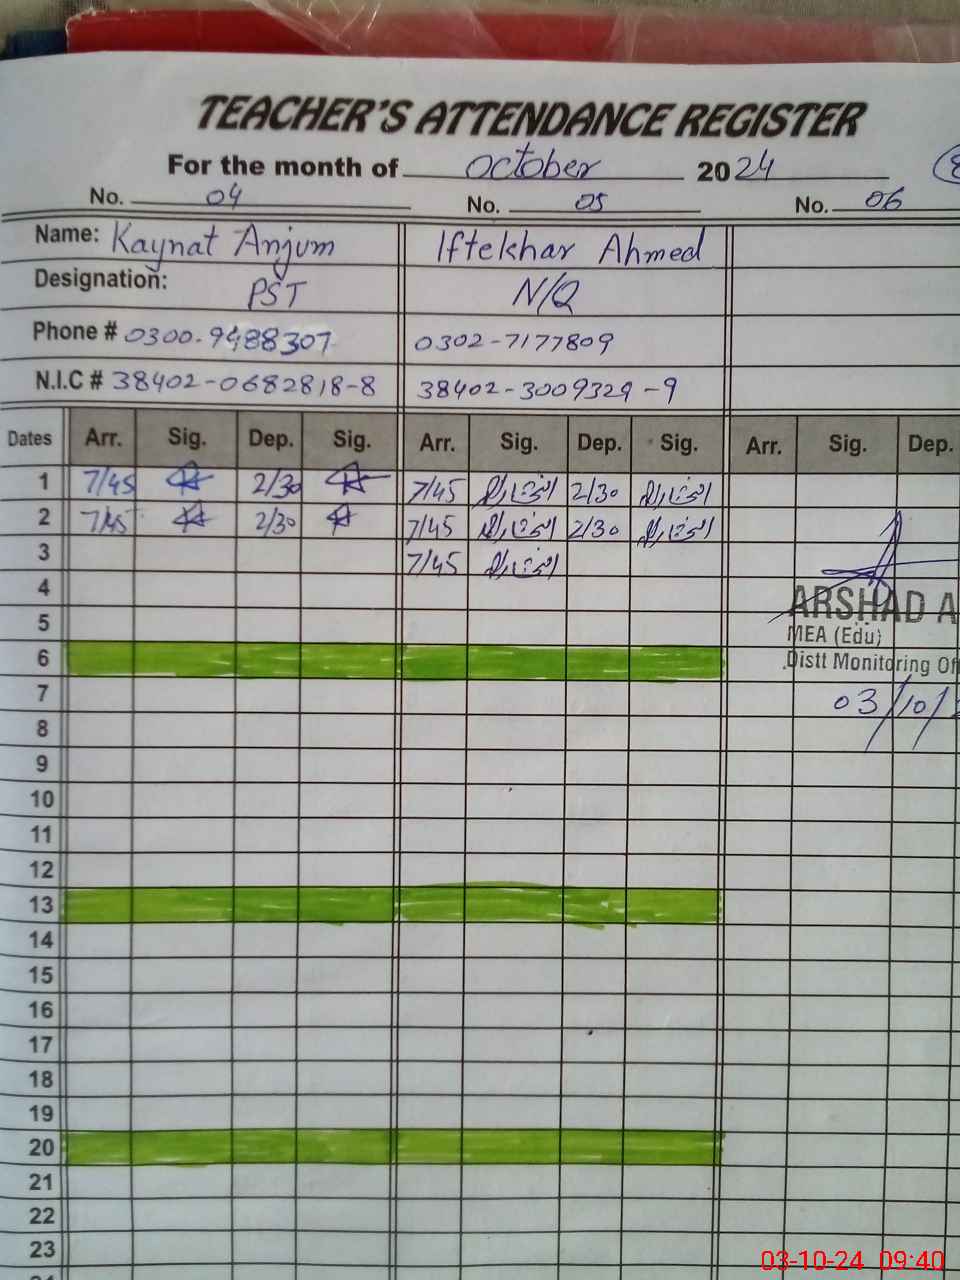 TEACHER'S ATTENDANCE REGISTER
For the month of October 2024
No. 04 No. 05 No. 06
Name: Kaynat Anjum Iftekhar Ahmed
Designation: PST N/Q
Phone # 0300-9488307 0302-7177809
N.I.C # 38402-0682818-8 38402-3009329-9
Dates Arr. Sig. Dep. Sig. Arr. Sig. Dep. Sig. Arr. Sig. Dep.
1 7/45 2/30 7/45 افتخار 2/30 افتخار
2 7/45 2/30 7/45 افتخار 2/30 افتخار
3 7/45 افتخار
4
ARSHAD A
5
MEA (Edu)
6
Distt Monitoring Of
7
03/10/2
8
9
10
11
12
13
14
15
16
17
18
19
20
21
22
23
03-10-24 09:40